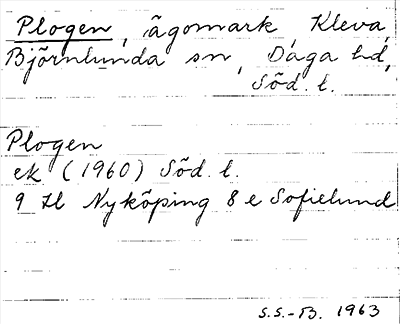 Plogen, ägomark, Kleva,
Björnlunda sn, Daga hd,
Söd. l.
Plogen
ek (1960) Söd. l.
9 H Nyköping 8 e Sofielund
S.S.-B. 1963